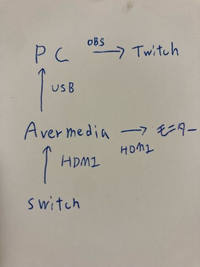 PC OBS → Twitch
↑ USB
Avermedia → モニター
HDMI
↑ HDMI
Switch